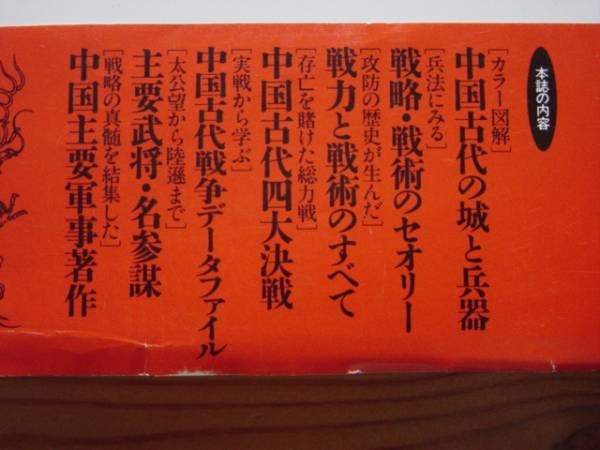 本誌の内容
[カラー図解]
中国古代の城と兵器
[兵法にみる]
戦略・戦術のセオリー
[攻防の歴史が生んだ]
戦力と戦術のすべて
[存亡を賭けた総力戦]
中国古代四大決戦
[実戦から学ぶ]
中国古代戦争データファイル
[太公望から陸遜まで]
主要武将・名参謀
[戦略の真髄を結集した]
中国主要軍事著作